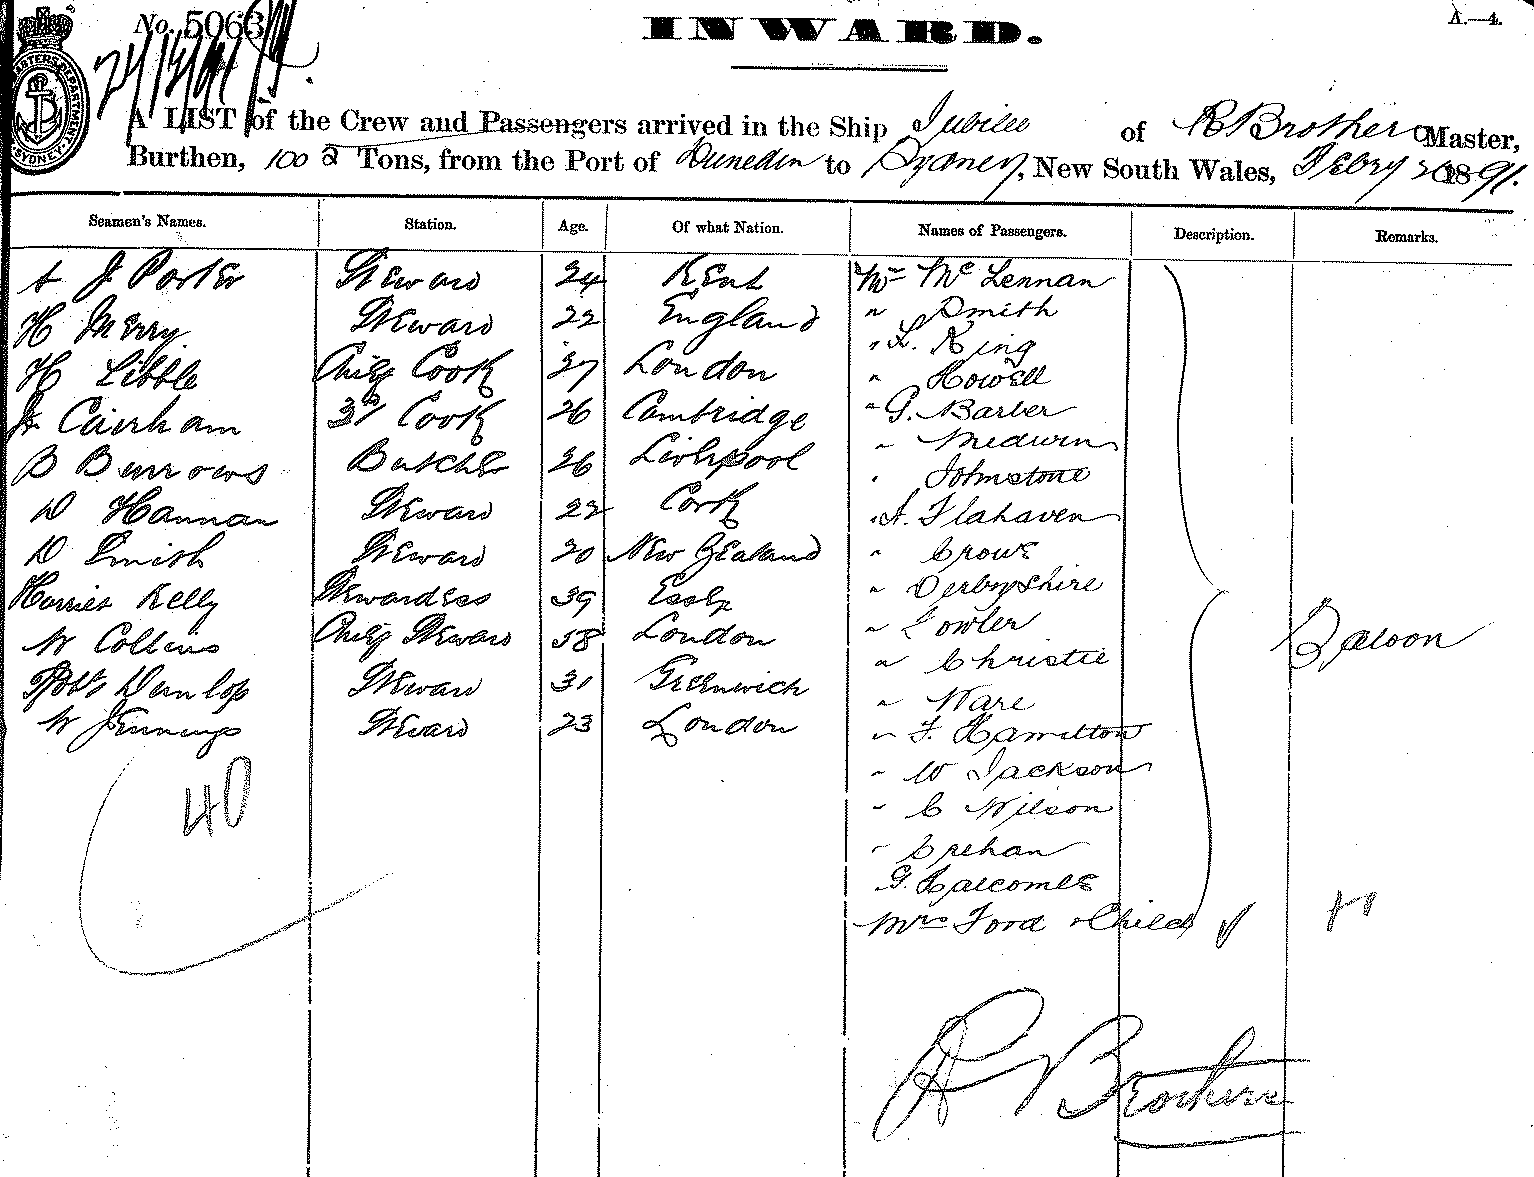 No. 5063
INWARD.
A.—4.
SYDNEY
A LIST of the Crew and Passengers arrived in the Ship Jubilee of R Brothers Master,
Burthen, 100 Tons, from the Port of Dunedin to Sydney, New South Wales, Febry 1891.
Seamen's Names. Station. Age. Of what Nation. Names of Passengers. Description. Remarks.
A J Porter Steward 24 Kent Mr McLennan
H Merry Steward 22 England " Smith
" L. King
H Libble Chief Cook 37 London " Howell
J. Cairham 3rd Cook 26 Cambridge " G. Barber
" Medwin
B Burrows Butcher 26 Liverpool " Johnstone
D Hannan Steward 22 Cork " A. Flahaven
D Smith Steward 20 New Zealand " Crowe
Harriet Kelly Stewardess 39 Essex " Derbyshire
W Collins Chief Steward 58 London " Fowler
Saloon
" Christie
Robt Dunlop Steward 31 Greenwich " Ware
W Jennings Steward 23 London " F. Hamilton
" W Jackson
40 " C Wilson
" Crehan
G. Halcombe
Mrs Ford & Child
R Brothers